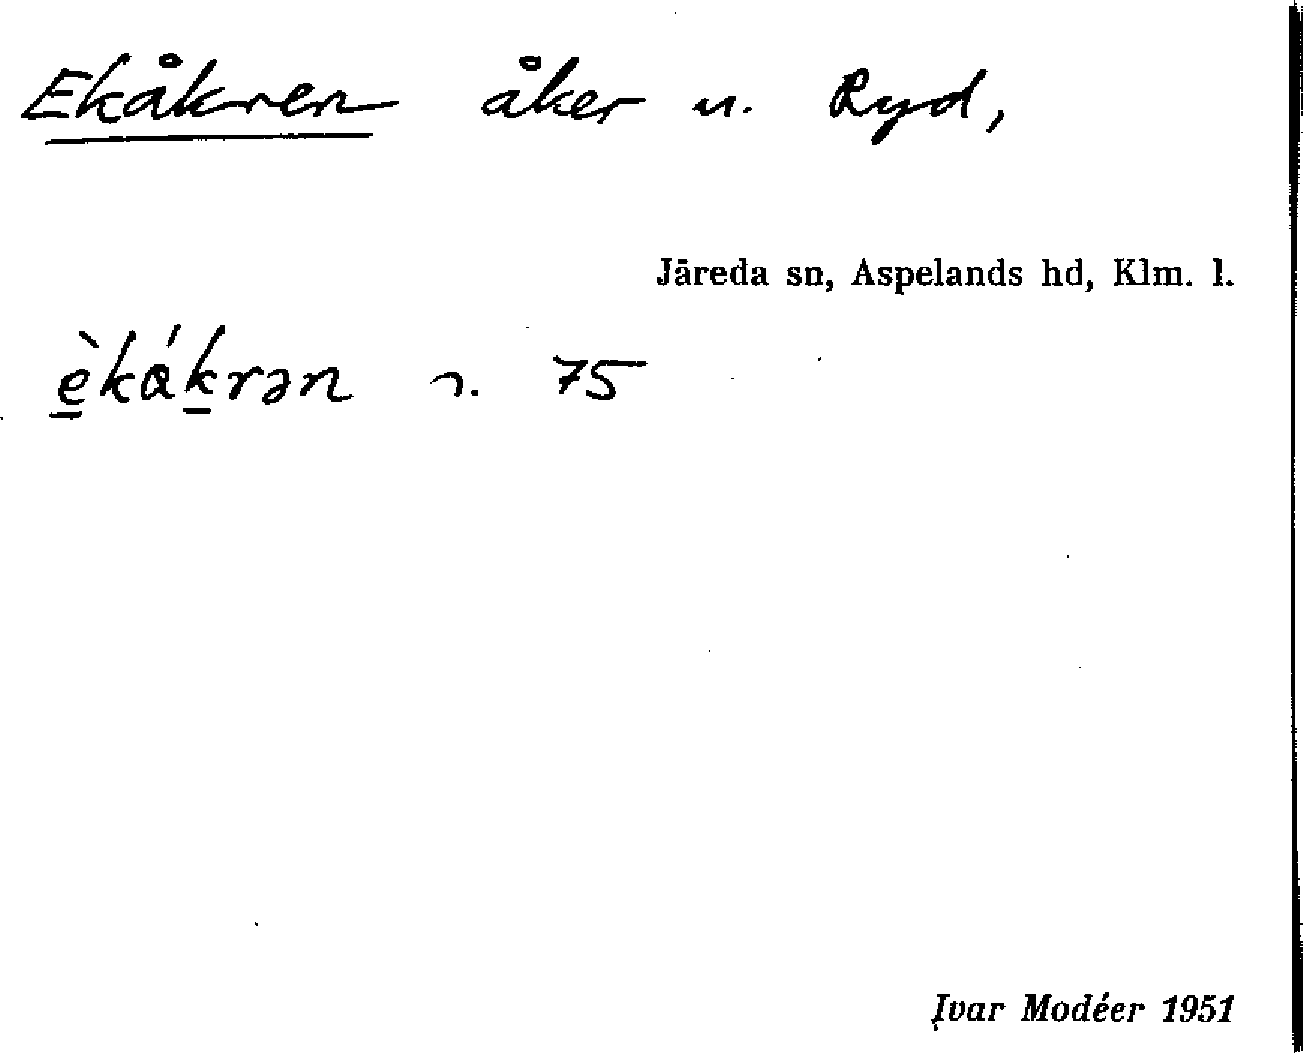 Ekåkren åker u. Ryd,
Järeda sn, Aspelands hd, Klm. l.
èkákrən n. 75
Ivar Modéer 1951